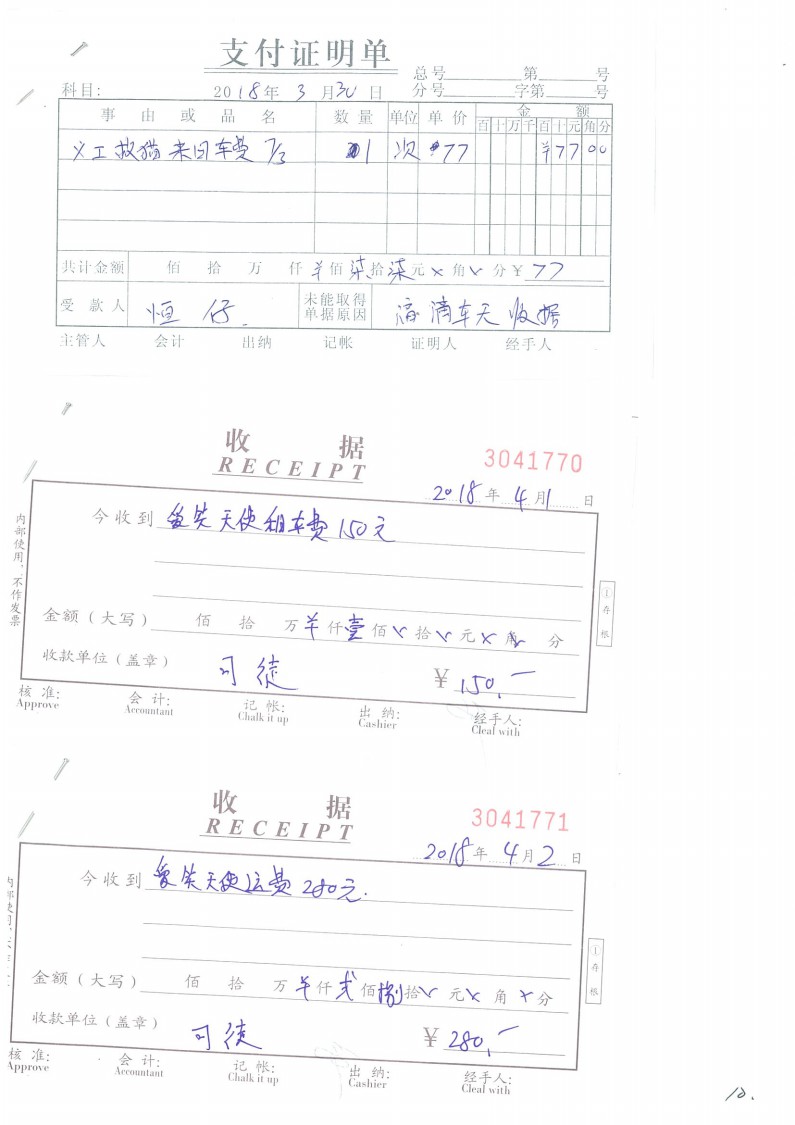 支付证明单
总号 第 号
科目: 2018年 3 月30日 分号 字第 号
事 由 或 品 名 数 量 单位 单 价 金 额
百 十 万 千 百 十 元 角 分
义工救猫来回车费 7/3 1 次 77 ¥77 00
共计金额 佰 拾 万 仟 ¥佰 柒拾 柒元 x 角 x 分 ¥ 77
受 款 人 恒 仔 未能取得单据原因 滴车无收据
主管人 会计 出纳 记帐 证明人 经手人
收 据
RECEIPT
3041770
2018年 4月1 日
今收到 爱笑天使租车费150元
内部使用,不作发票
①存根
金额（大写） 佰 拾 万 ¥仟 壹佰 x 拾 x 元 x 角 分
收款单位（盖章） 司徒 ¥ 150.一
核 准: 会 计: 记 帐: 出 纳: 经手人:
Approve Accountant Chalk it up Cashier Cleal with
收 据
RECEIPT
3041771
2018年 4月2 日
今收到 爱笑天使运费280元.
①存根
金额（大写） 佰 拾 万 ¥仟 弍佰捌拾 x 元 x 角 x 分
收款单位（盖章） 司徒 ¥ 280.一
核 准: 会 计: 记 帐: 出 纳: 经手人:
Approve Accountant Chalk it up Cashier Cleal with
10.